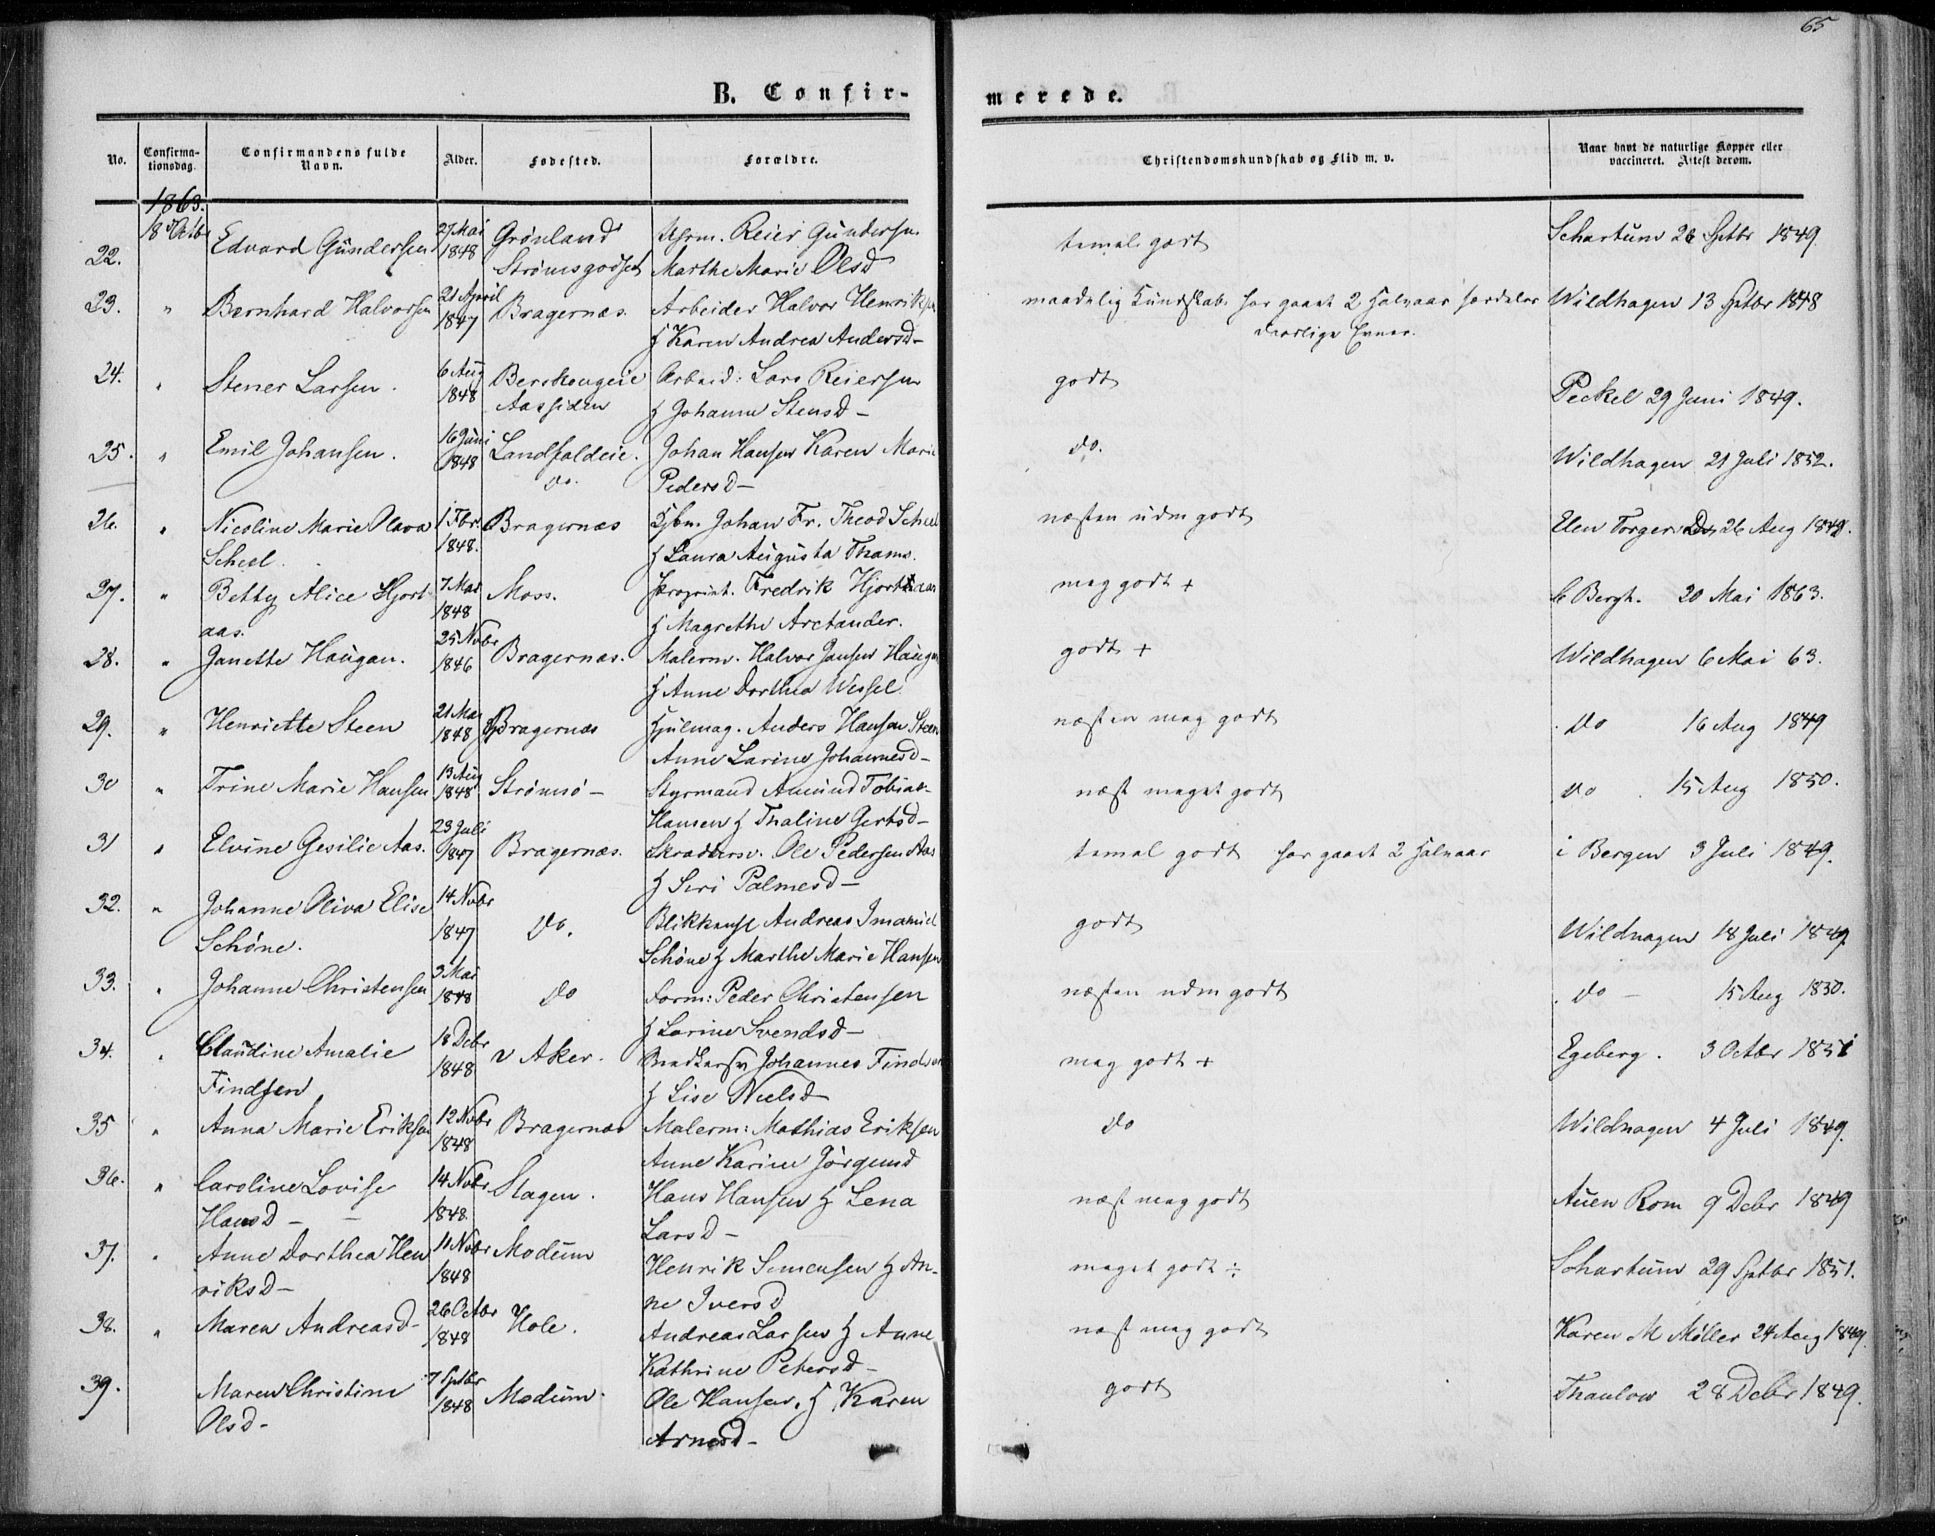 65
B. Confir-
merede.
No.
Confirma-
tionsdag.
Confirmandens fulde
Navn.
Alder.
Fødested.
Forældre.
Christendomskundskab og Flid m. v.
Naar havt de naturlige Kopper eller
vaccineret. Attest derom.
1863.
18 Octb
22. Edvard Gundersen 27 Mai 1848 Grønland Reier Gundersen temal. godt Schartum 26 Sptbr 1849.
Strømsgodset Marthe Marie Olsd
23. " Bernhard Halvorsen 21 April 1847 Bragernæs. Arbeider Halvor Henriksen maadelig Kundskab. har gaaet 2 Halvaar Wildhagen 13 Sptbr 1848
& Karen Andrea Andersd- daarlige Evner.
24. " Stener Larsen. 6 Aug 1848 Berskougeie Arbeid: Lars Reiersen godt Peckel 29 Juni 1849.
Aassiden & Johanne Stensd-
25. " Emil Johansen. 16 Juni 1848 Landfaldeie. Johan Hansen Karen Marie do. Wildhagen 21 Juli 1852.
do. Pedersd-
26. " Nicoline Marie Olava 1 Fbr. 1848. Bragernæs Kjbm. Johan Fr. Theod Scheel næsten udm godt Elen Torgers D. 26 Aug 1848.
Scheel. & Laura Augusta Thams.
27. " Betty Alice Hjort- 7 Mai 1848 Moss. Fredrik Hjortaas meg godt + C Bergh. 20 Mai 1863.
aas. & Magrethe Arctander.
28. " Janette Haugan. 25 Nvbr 1846 Bragernæs. Malerm. Halvor Jansen Haugan godt + Wildhagen 6 Mai 63.
& Anne Dorthea Wessel
29. " Henriette Steen 21 Mai 1848 Bragernæs Hjulmag. Anders Hansen Steen næsten meg godt do 16 Aug 1849
Anne Larine Johannesd-
30 " Trine Marie Hansen 13 Aug 1848 Strømsø- Styrmand Amund Tobias- næst meget godt do 15 Aug 1850.
Hansen & Thaline Gertsd-
31 " Elvine Gesilie Aas. 23 Juli 1847 Bragernæs. Skræddersv. Ole Pedersen Aas temal godt har gaaet 2 Halvaar i Bergen 3 Juli 1849.
& Siri Palmesd-
32. " Johanne Oliva Elise 14 Nvbr 1847 do. Blikkensl Andreas Imanuel godt Wildhagen 18 Juli 1849
Schöne. Schöne & Marthe Marie Hansen
33. " Johanne Christensen 3 Mai 1848 do Form: Peder Christensen næsten udm godt do - 15 Aug 1850.
& Larine Svendsd-
34. " Claudine Amalie 18 Debr 1848 v Aker. Johannes Findsen meg godt + Egeberg. 3 Octbr 1851
Findsen & Lise Nielsd-
35 " Anna Marie Eriksen 12 Nvbr 1848 Bragernæs Malerm: Mathias Eriksen do Wildhagen 4 Juli 1849.
Anne Karine Jörgensd
36. " Caroline Lovise 14 Nvbr 1848. Slagen. Hans Hansen & Lena næst meg godt Auen Rom 9 Debr 1849
Hansd- Larsd-
37. " Anne Dorthea Hen 11 Nvbr 1848 Modum Henrik Simensen & An- meget godt ÷ Schartum 29 Sptbr 1851.
riksd- ne Iversd
38. " Maren Andreasd- 26 Octbr 1848 Hole. Andreas Larsen & Anne næst meg godt Karen M Møller 24 Aug 1849.
Kathrine Petersd-
39. Maren Christine 7 Sptbr 1848 Modum. Ole Hansen. & Karen godt Thaulow 28 Debr 1849.
Olsd- Arnesd-